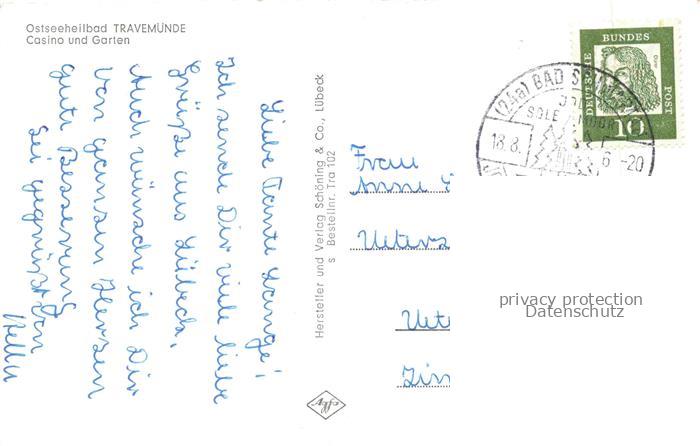 Ostseeheilbad TRAVEMÜNDE
Casino und Garten
Liebe Tante Lange!
Ich sende Dir viele liebe
Grüße aus Lübeck.
Auch wünsche ich Dir
von ganzen Herzen
gute Besserung
Sei gegrüßt von
Hersteller und Verlag Schöning & Co., Lübeck
s Bestellnr. Tra 102
Frau
Anne
Ueters
Uet
Zim
(24a) BAD S
SOLE
MOOR
18.8.
6 -20
DEUTSCHE
BUNDES
POST
10
privacy protection
Datenschutz